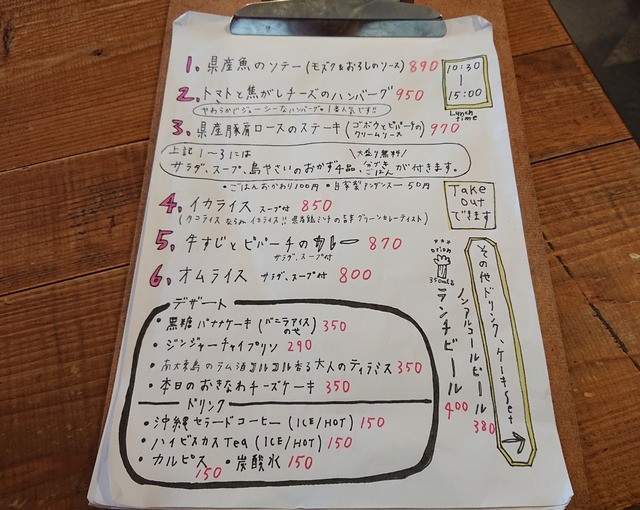 1. 県産魚のソテー(モズク&おろしのソース) 890
2. トマトと焦がしチーズのハンバーグ 950
やわらかでジューシーなハンバーグ。1番人気です!!
3. 県産豚肩ロースのステーキ(ゴボウとピパーチの
クリームソース) 970
上記1〜3には
\大盛り無料/
サラダ、スープ、島やさいのおかず4品、ごはん が付きます。
・ごはんおかわり100円 ・自家製アンダンスー 50円
4. イカライス スープ付 850
(タコライスならぬイカライス!! グリーンセレーティスト)
5. 牛すじとピパーチのカレー 870
サラダ、スープ付
6. オムライス サラダ、スープ付 800
デザート
・黒糖バナナケーキ(バニラアイス
のせ) 350
・ジンジャーチャイプリン 290
・南大東島のラム酒コルコル香る大人のティラミス 350
・本日のおきなわチーズケーキ 350
ドリンク
・沖縄セラードコーヒー(ICE/HOT) 150
・ハイビスカスTea(ICE/HOT) 150
・カルピス 150 ・炭酸水 150
10:30
|
15:00
Lunch
time
Take
Out
できます
その他ドリンク、ケーキset
ノンアルコールビール 380
orion
350mL
ランチビール 400